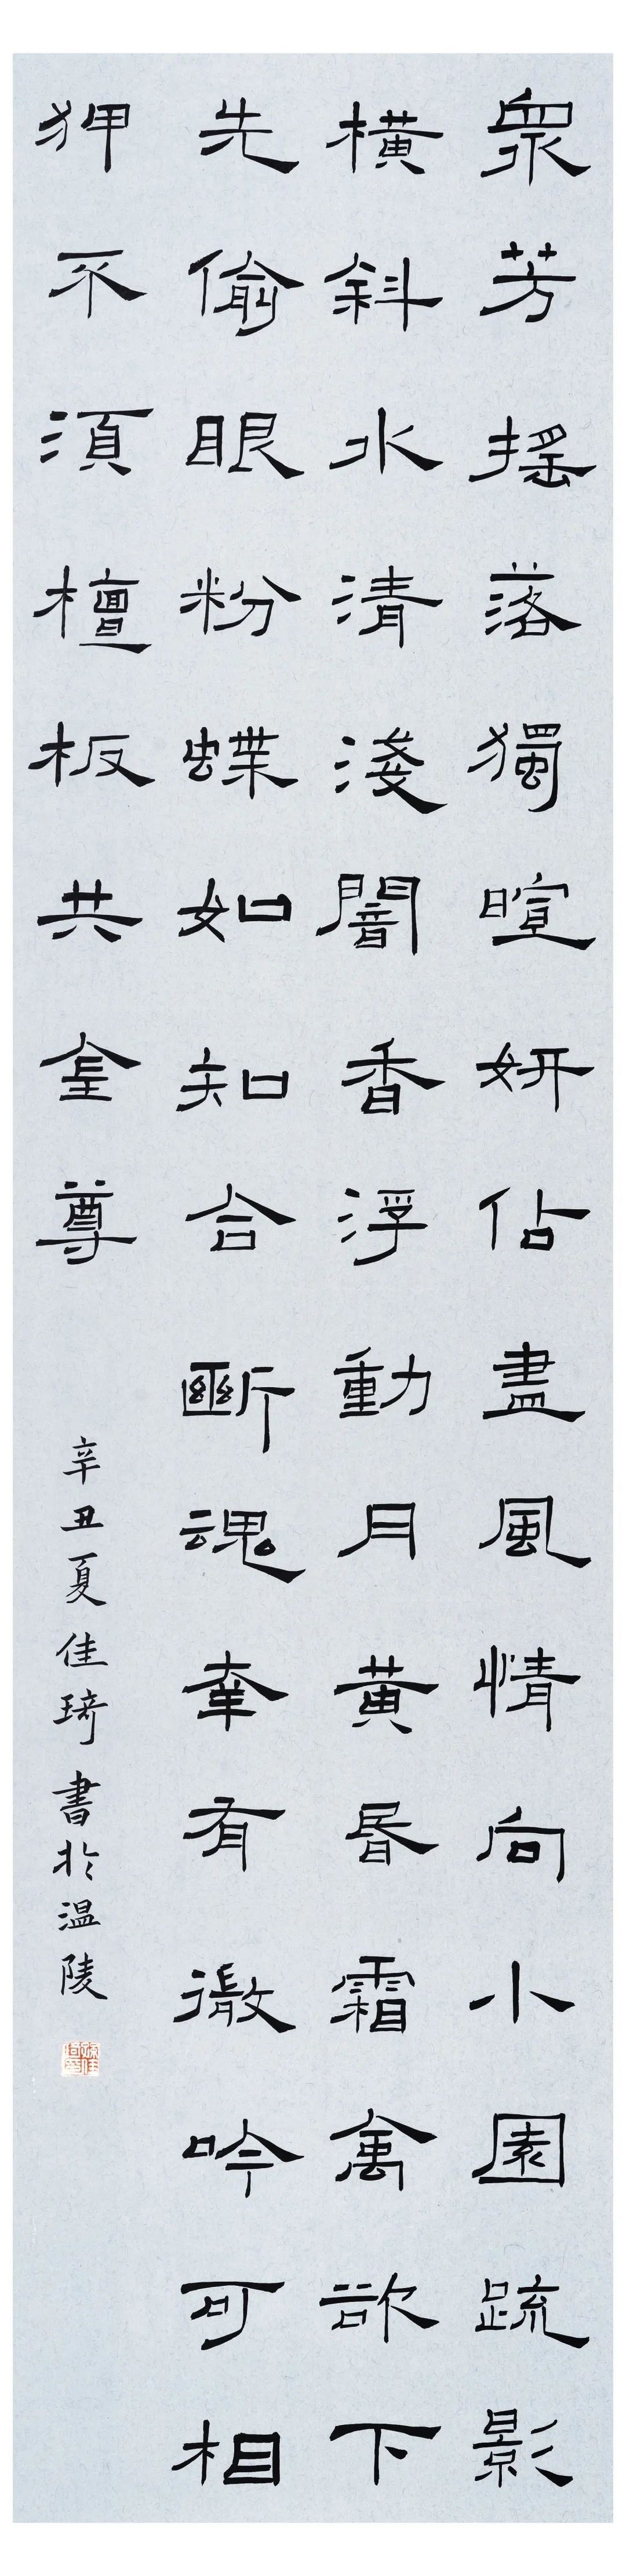 衆芳搖落獨暄妍佔盡風情向小園疏影
橫斜水清淺闇香浮動月黃昏霜禽欲下
先偷眼粉蝶如知合斷魂幸有微吟可相
狎不須檀板共金尊
辛丑夏佳琦書於温陵